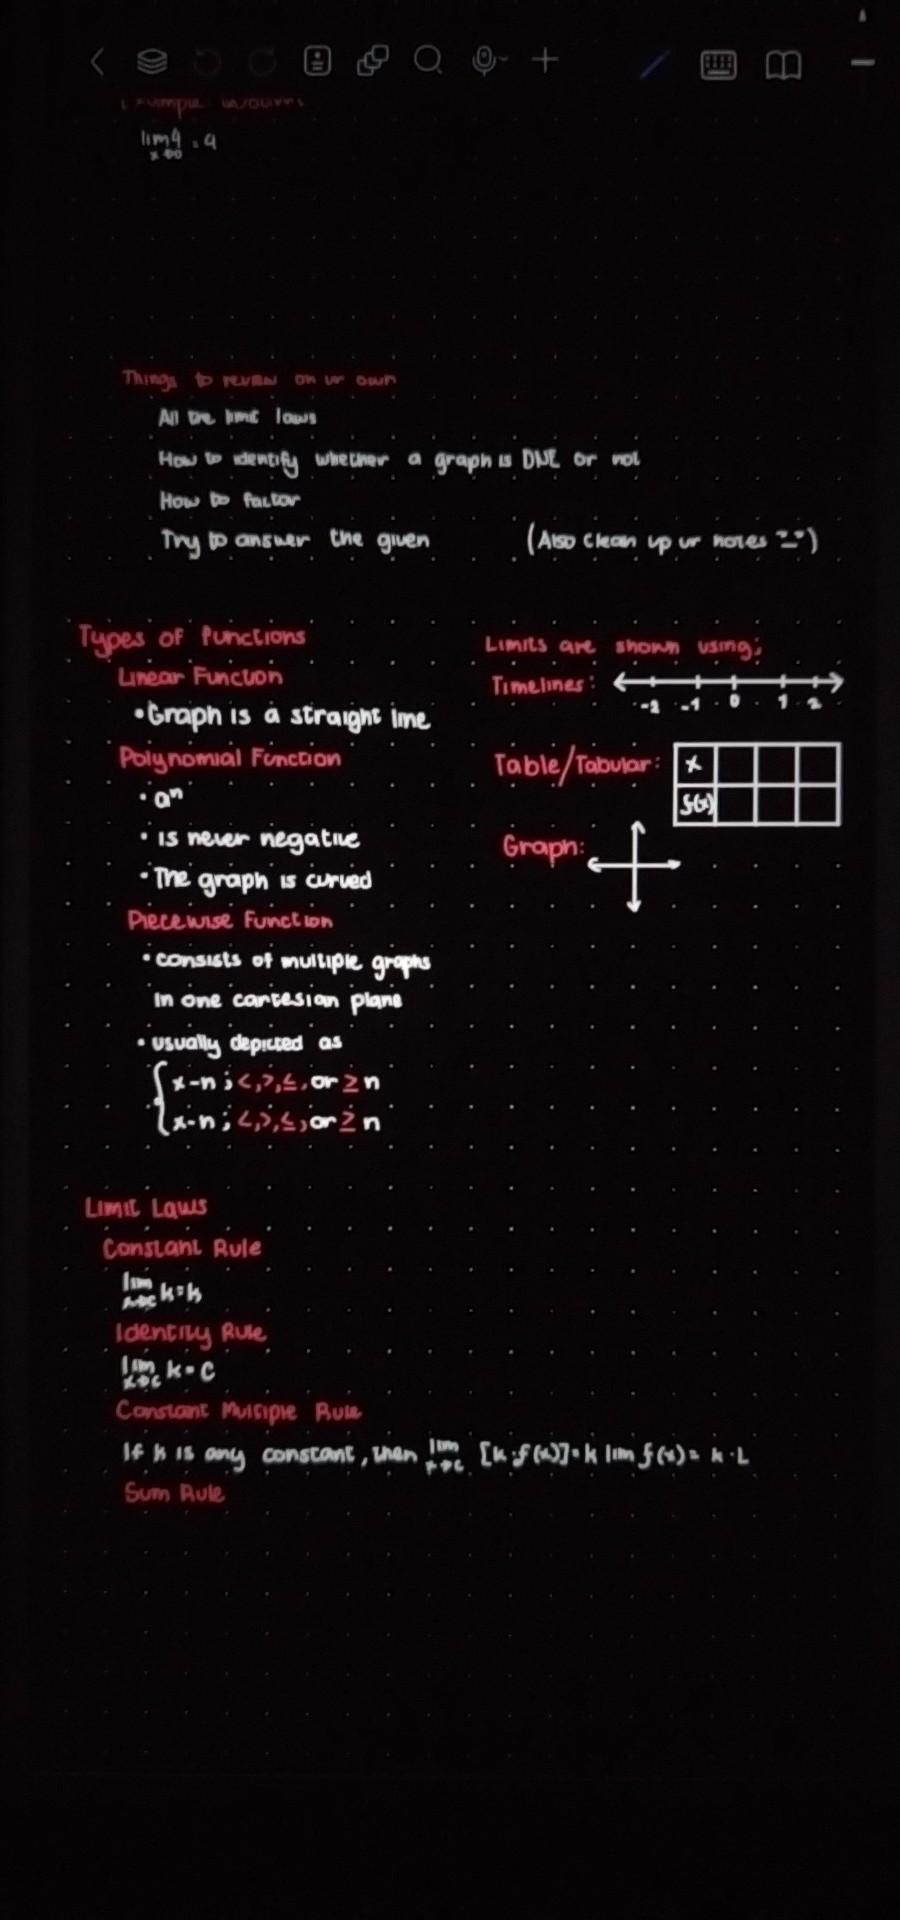 lim 9 = 9
x→0
Things to review on ur own
All the limit laws
How to identify whether a graph is DNE or not
How to factor
Try to answer the given (Also clean up ur notes
Types of functions
Linear Function
• Graph is a straight line
Polynomial Function
• aⁿ
• is never negative
• The graph is curved
Piecewise Function
• consists of multiple graphs
in one cartesian plane
• usually depicted as
x-n ; <,>,≤, or ≥ n
x-n ; <,>,≤, or ≥ n
Limits are shown using;
Timelines: -2 -1 0 1 2
Table/Tabular: x
f(x)
Graph:
Limit Laws
Constant Rule
lim k = k
x→c
Identity Rule
lim k = c
x→c
Constant Multiple Rule
If k is any constant, then lim [k·f(x)] = k lim f(x) = k·L
x→c
Sum Rule